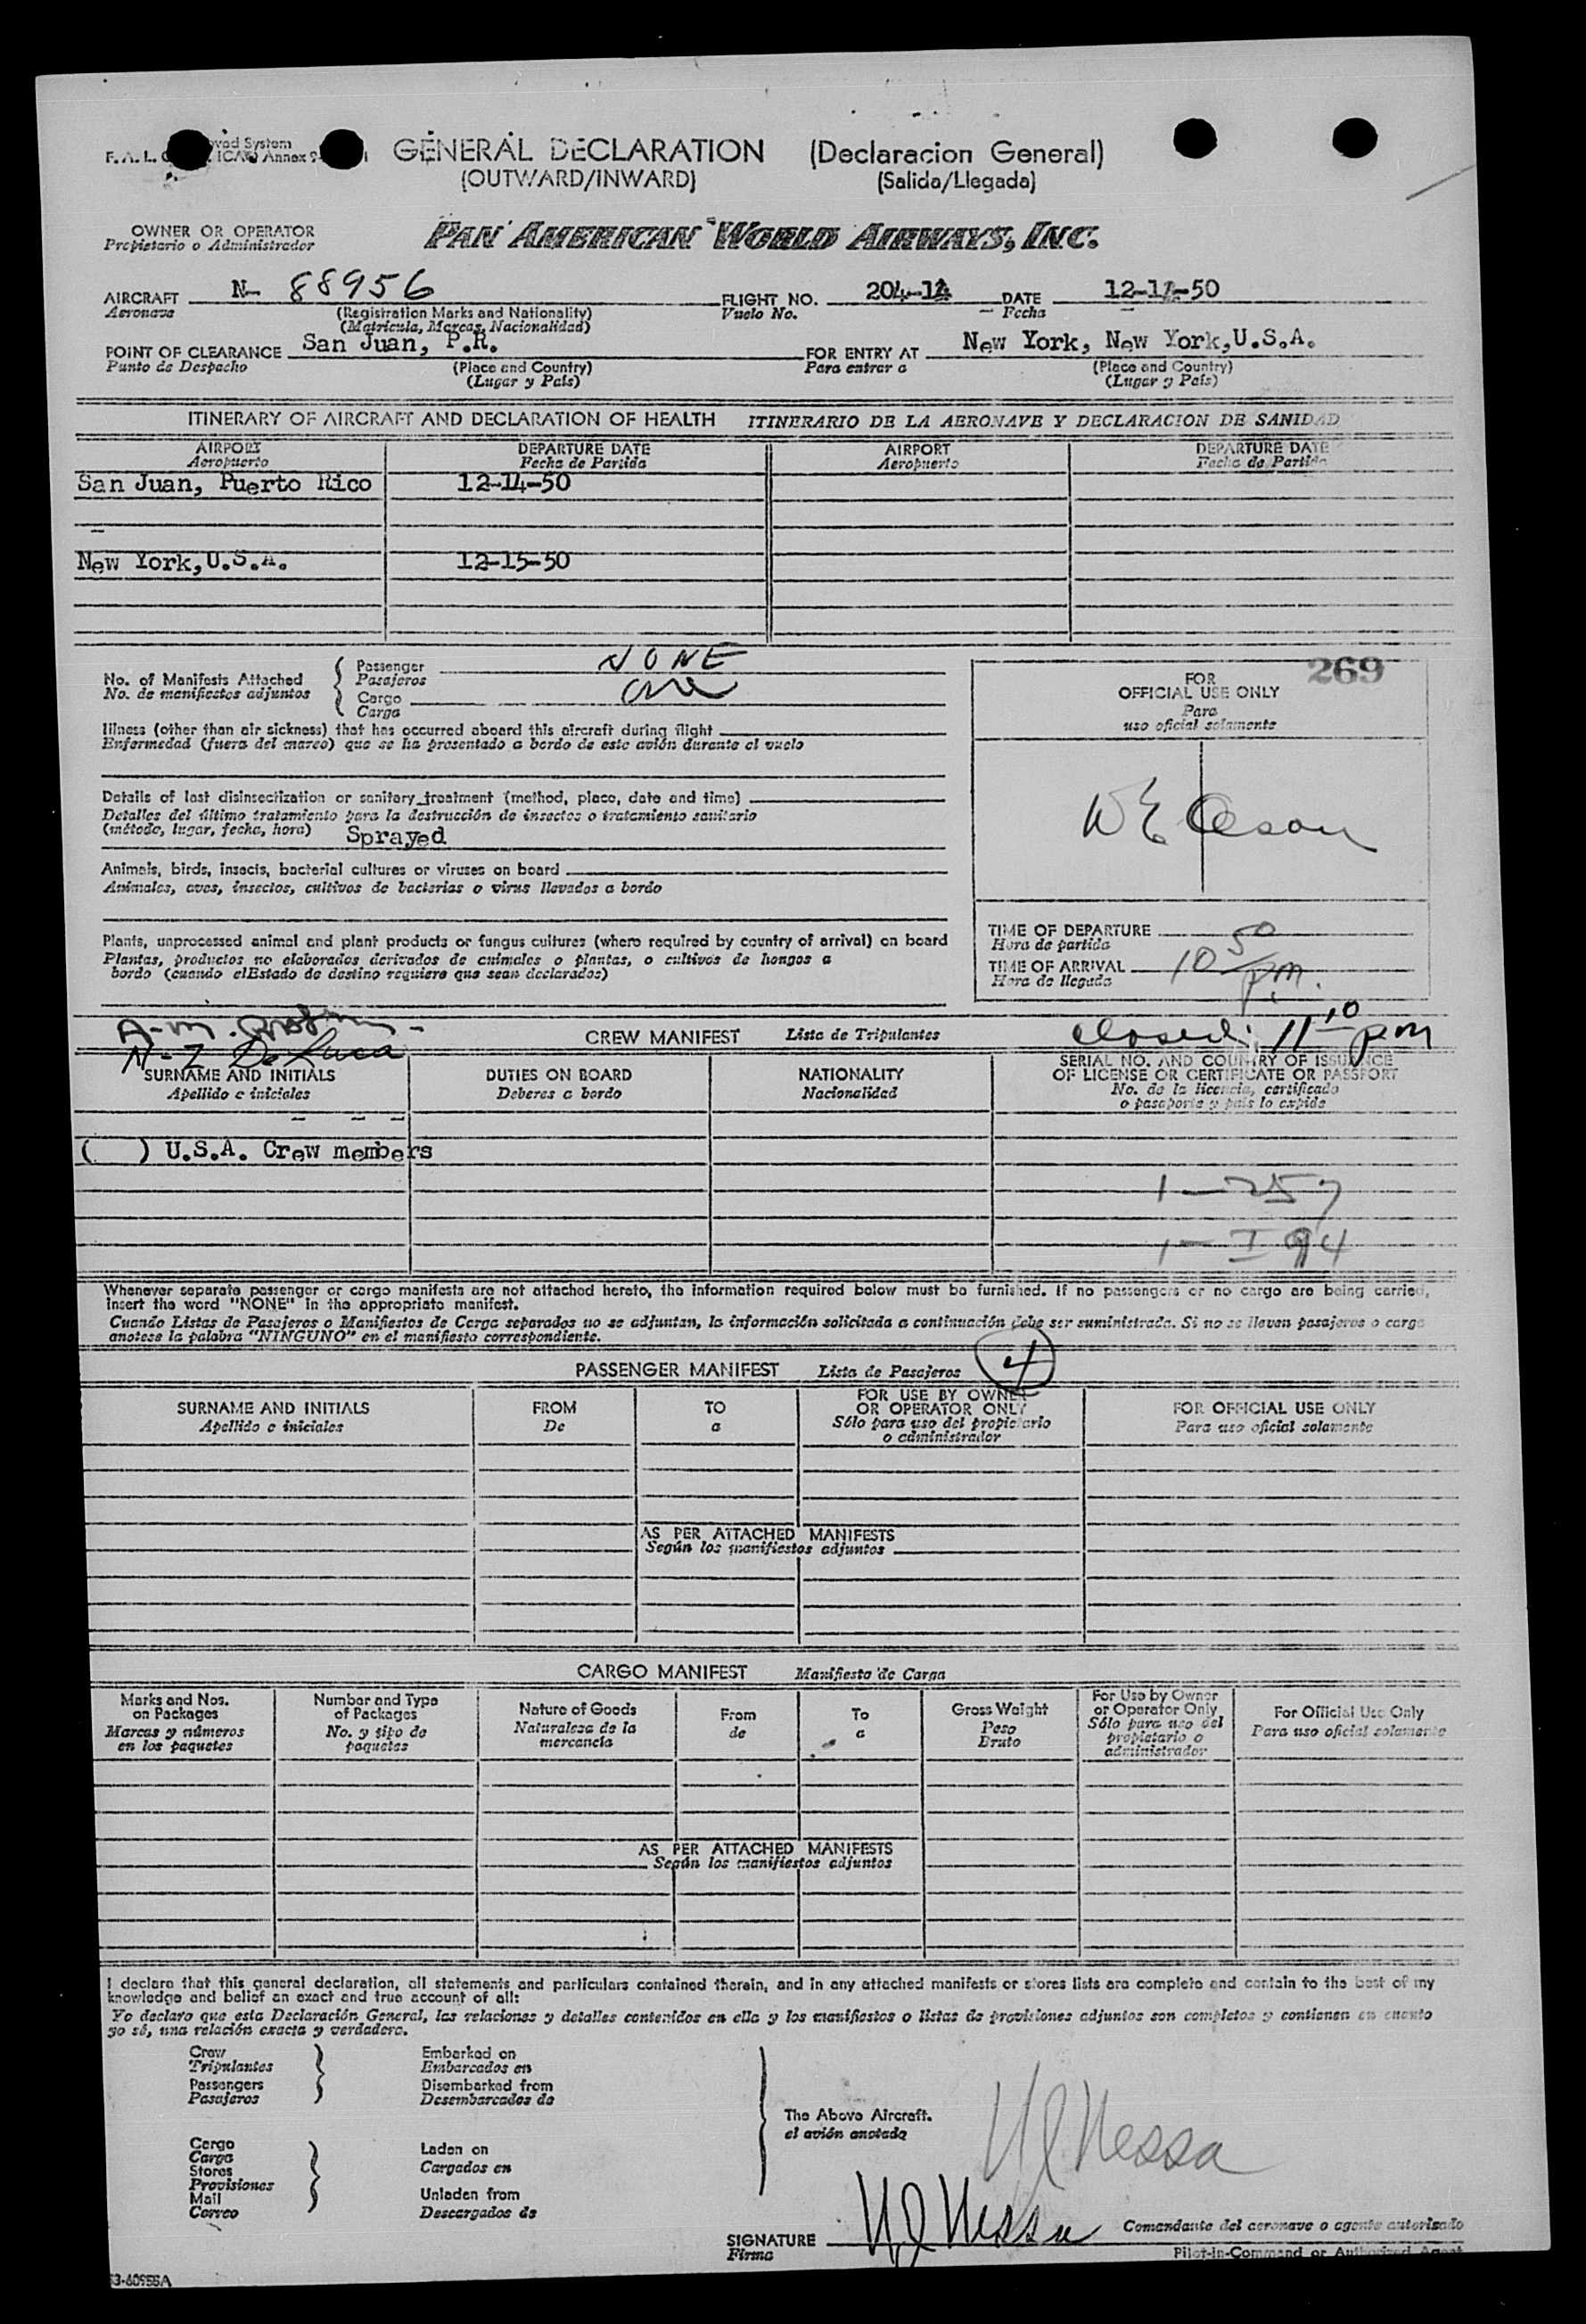 F. A. L. ICAO Annex 9
GENERAL DECLARATION (Declaracion General)
(OUTWARD/INWARD) (Salida/Llegada)
OWNER OR OPERATOR
Propietario o Administrador
PAN AMERICAN WORLD AIRWAYS, INC.
AIRCRAFT N- 88956 FLIGHT NO. 204-14 DATE 12-14-50
Aeronave (Registration Marks and Nationality) Vuelo No. Fecha
(Matricula, Marcas, Nacionalidad)
POINT OF CLEARANCE San Juan, P.R. FOR ENTRY AT New York, New York, U.S.A.
Punto de Despacho (Place and Country) Para entrar a (Place and Country)
(Lugar y País) (Lugar y País)
ITINERARY OF AIRCRAFT AND DECLARATION OF HEALTH ITINERARIO DE LA AERONAVE Y DECLARACION DE SANIDAD
AIRPORT DEPARTURE DATE AIRPORT DEPARTURE DATE
Aeropuerto Fecha de Partida Aeropuerto Fecha de Partida
San Juan, Puerto Rico 12-14-50
New York, U.S.A. 12-15-50
No. of Manifests Attached
No. de manifiestos adjuntos
Passenger NONE
Pasajeros
Cargo one
Carga
269
FOR
OFFICIAL USE ONLY
Para
uso oficial solamente
Illness (other than air sickness) that has occurred aboard this aircraft during flight
Enfermedad (fuera del mareo) que se ha presentado a bordo de este avión durante el vuelo
Details of last disinsectization or sanitary treatment (method, place, date and time)
Detalles del último tratamiento para la destrucción de insectos o tratamiento sanitario
(método, lugar, fecha, hora) Sprayed
Animals, birds, insects, bacterial cultures or viruses on board
Animales, aves, insectos, cultivos de bacterias o virus llevados a bordo
Plants, unprocessed animal and plant products or fungus cultures (where required by country of arrival) on board
Plantas, productos no elaborados derivados de animales o plantas, o cultivos de hongos a
bordo (cuando elEstado de destino requiere que sean declarados)
TIME OF DEPARTURE
Hora de partida
TIME OF ARRIVAL 10 50 P.M.
Hora de llegada
N-Z De Luca
CREW MANIFEST Lista de Tripulantes
closed: 11 10 pm
SURNAME AND INITIALS DUTIES ON BOARD NATIONALITY SERIAL NO. AND COUNTRY OF ISSUANCE
OF LICENSE OR CERTIFICATE OR PASSPORT
Apellido e iniciales Deberes a bordo Nacionalidad No. de la licencia, certificado
o pasaporte y país lo expide
( ) U.S.A. Crew members
1 - 257
1 - I 94
Whenever separate passenger or cargo manifests are not attached hereto, the information required below must be furnished. If no passengers or no cargo are being carried,
insert the word "NONE" in the appropriate manifest.
Cuando Listas de Pasajeros o Manifiestos de Carga separados no se adjuntan, la información solicitada a continuación debe ser suministrada. Si no se llevan pasajeros o carga
anotese la palabra "NINGUNO" en el manifiesto correspondiente.
PASSENGER MANIFEST Lista de Pasajeros 4
SURNAME AND INITIALS FROM TO FOR USE BY OWNER
OR OPERATOR ONLY FOR OFFICIAL USE ONLY
Apellido e iniciales De a Sólo para uso del propietario
o administrador Para uso oficial solamente
AS PER ATTACHED MANIFESTS
Según los manifiestos adjuntos
CARGO MANIFEST Manifiesto de Carga
Marks and Nos.
on Packages
Marcas y números
en los paquetes
Number and Type
of Packages
No. y tipo de
paquetes
Nature of Goods
Naturaleza de la
mercancía
From
de
To
a
Gross Weight
Peso
Bruto
For Use by Owner
or Operator Only
Sólo para uso del
propietario o
administrador
For Official Use Only
Para uso oficial solamente
AS PER ATTACHED MANIFESTS
Según los manifiestos adjuntos
I declare that this general declaration, all statements and particulars contained therein, and in any attached manifests or stores lists are complete and contain to the best of my
knowledge and belief an exact and true account of all:
Yo declaro que esta Declaración General, las relaciones y detalles contenidos en ella y los manifiestos o listas de provisiones adjuntos son completos y contienen en cuanto
yo sé, una relación exacta y verdadera.
Crew
Tripulantes
Passengers
Pasajeros
Embarked on
Embarcados en
Disembarked from
Desembarcados de
The Above Aircraft.
el avión anotado
Cargo
Carga
Stores
Provisiones
Mail
Correo
Laden on
Cargados en
Unladen from
Descargados de
SIGNATURE
Firma
Comandante del aeronave o agente autorisado
Pilot-in-Command or Authorized Agent